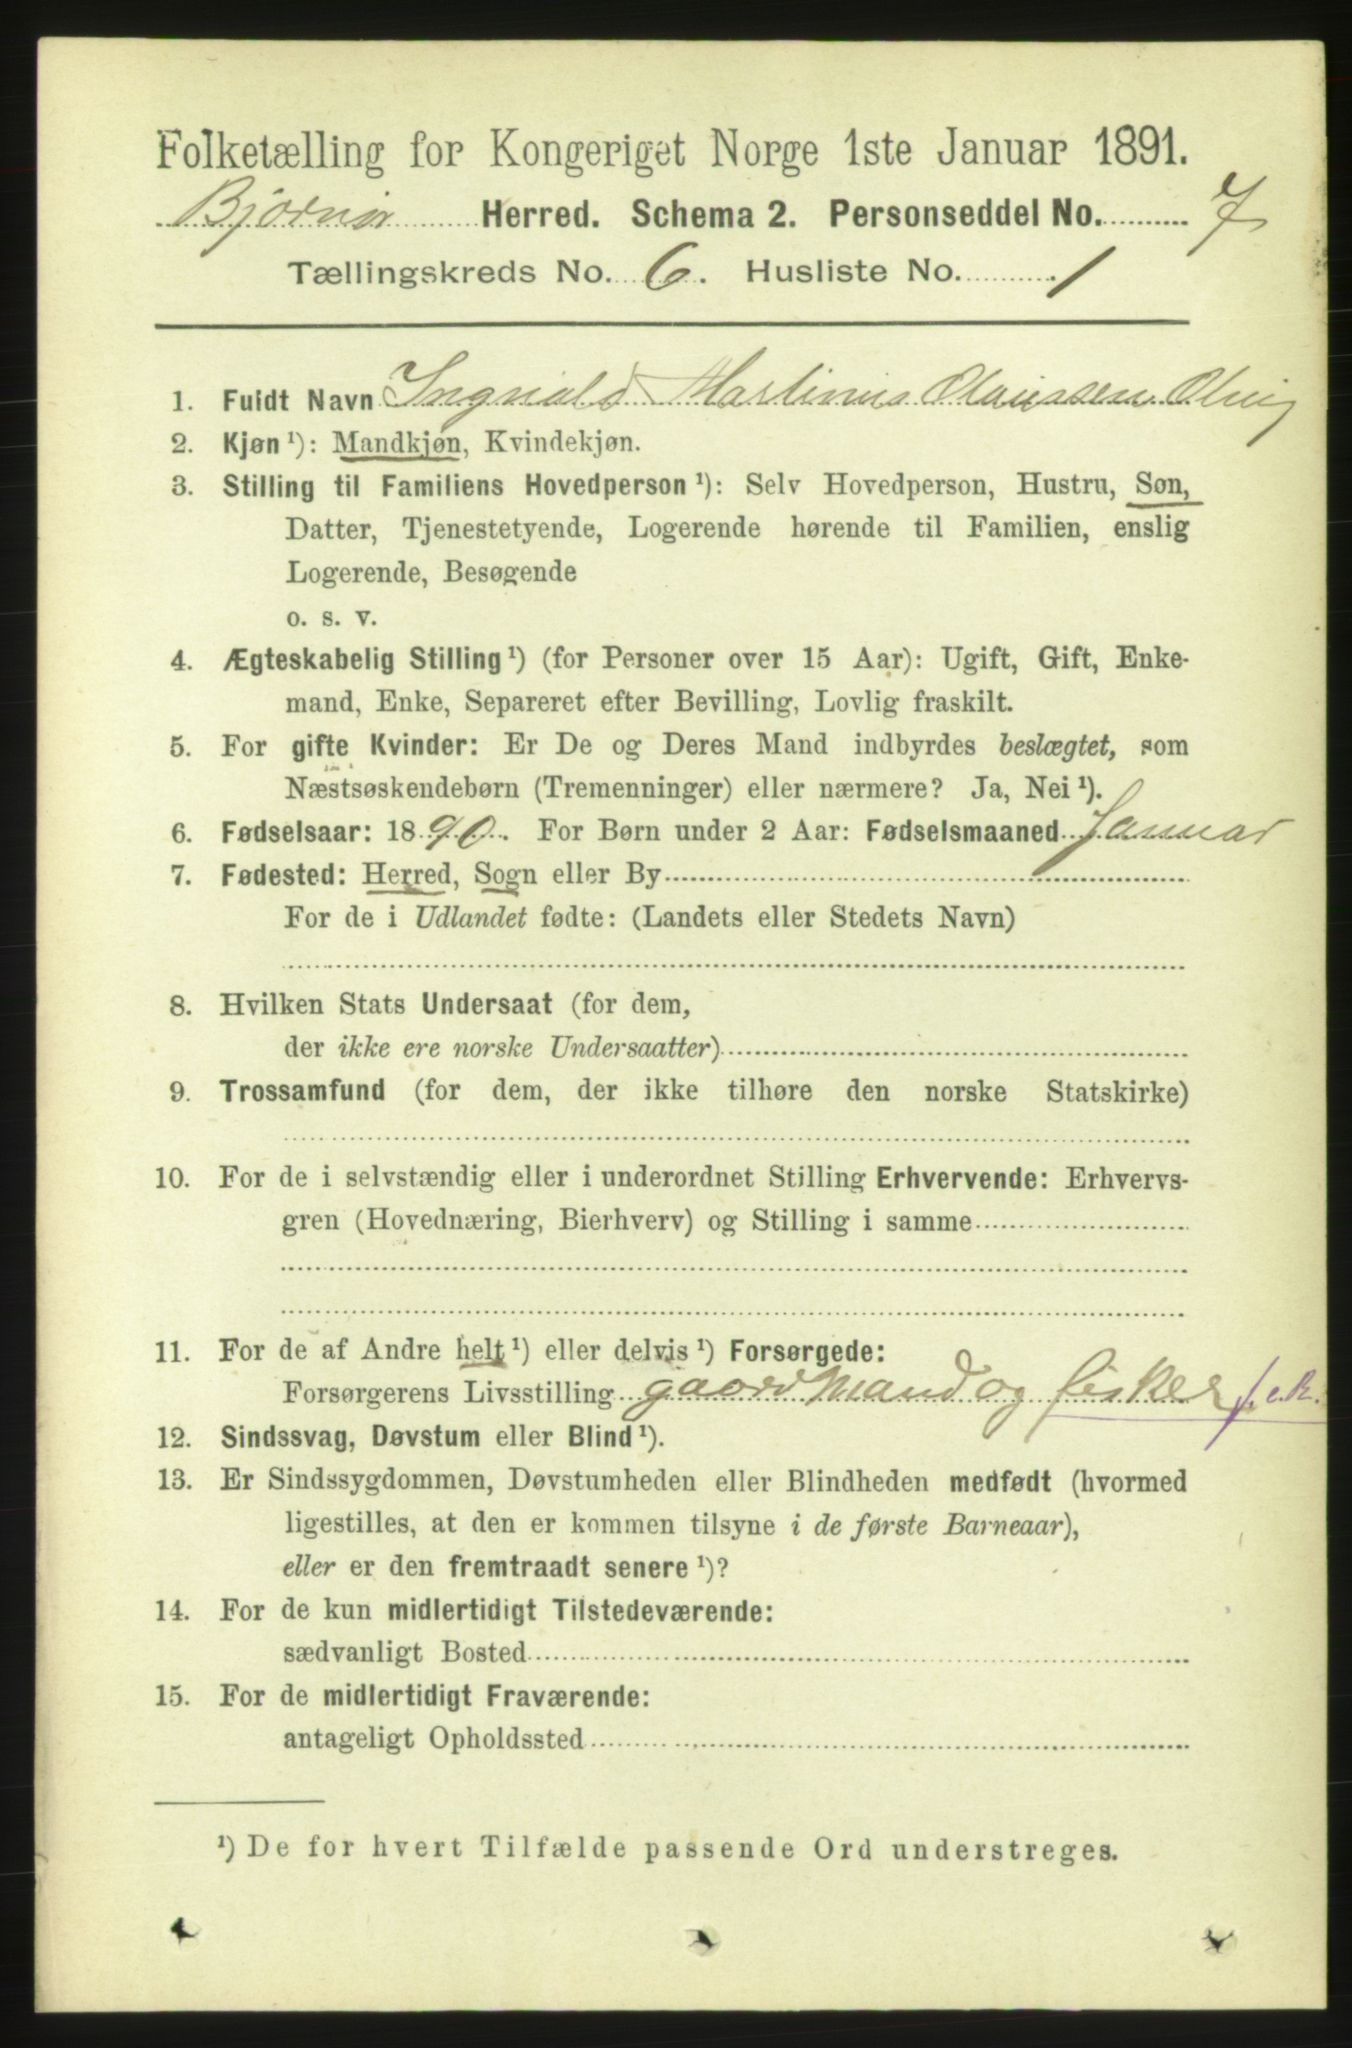 Folketælling for Kongeriget Norge 1ste Januar 1891.
Bjørnør Herred. Schema 2. Personseddel No. 7
Tællingskreds No. 6. Husliste No. 1
1. Fuldt Navn Ingvald Martinius Olaussen
2. Kjøn¹): Mandkjøn, Kvindekjøn.
3. Stilling til Familiens Hovedperson¹): Selv Hovedperson, Hustru, Søn,
Datter, Tjenestetyende, Logerende hørende til Familien, enslig
Logerende, Besøgende
o. s. v.
4. Ægteskabelig Stilling¹) (for Personer over 15 Aar): Ugift, Gift, Enke-
mand, Enke, Separeret efter Bevilling, Lovlig fraskilt.
5. For gifte Kvinder: Er De og Deres Mand indbyrdes beslægtet, som
Næstsøskendebørn (Tremenninger) eller nærmere? Ja, Nei¹).
6. Fødselsaar: 1890. For Børn under 2 Aar: Fødselsmaaned Januar
7. Fødested: Herred, Sogn eller By
For de i Udlandet fødte: (Landets eller Stedets Navn)
8. Hvilken Stats Undersaat (for dem,
der ikke ere norske Undersaatter)
9. Trossamfund (for dem, der ikke tilhøre den norske Statskirke)
10. For de i selvstændig eller i underordnet Stilling Erhvervende: Erhvervs-
gren (Hovednæring, Bierhverv) og Stilling i samme
11. For de af Andre helt¹) eller delvis¹) Forsørgede:
Forsørgerens Livsstilling gaardmand og fisker f.e.R.
12. Sindssvag, Døvstum eller Blind¹).
13. Er Sindssygdommen, Døvstumheden eller Blindheden medfødt (hvormed
ligestilles, at den er kommen tilsyne i de første Barneaar),
eller er den fremtraadt senere¹)?
14. For de kun midlertidigt Tilstedeværende:
sædvanligt Bosted
15. For de midlertidigt Fraværende:
antageligt Opholdssted
¹) De for hvert Tilfælde passende Ord understreges.